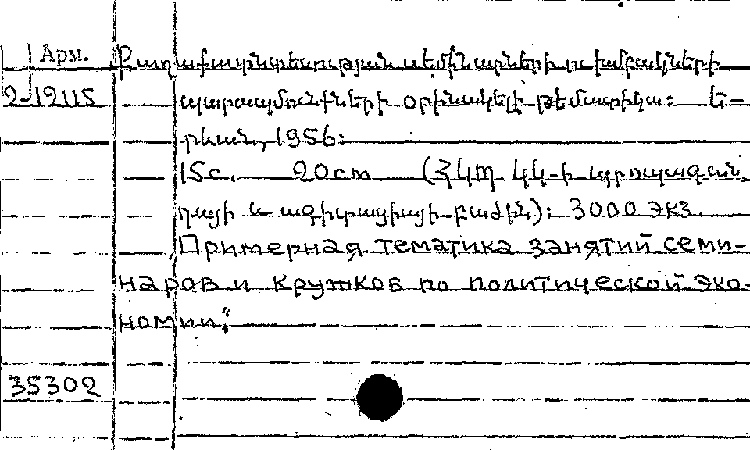 Арм. Քաղաքատնտեսության սեմինարների ու խմբակների
2-12115 պարապմունքների օրինակելի թեմատիկա: Ե-
րևան, 1956:
15с. 20cm (ՀԿՊ ԿԿ-ի պրոպագան-
դայի և ագիտացիայի բաժին): 3000 экз.
Примерная тематика занятий семи-
наров и кружков по политической эко-
номии."
35302